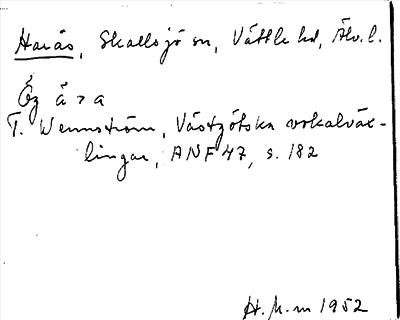 Harås, Skallsjö sn, Vättle hd, Älv. l.
Ög å > a
T. Wennström, Västgötska vokalväx-
lingar, ANF 47, s. 182
H. M-m 1952